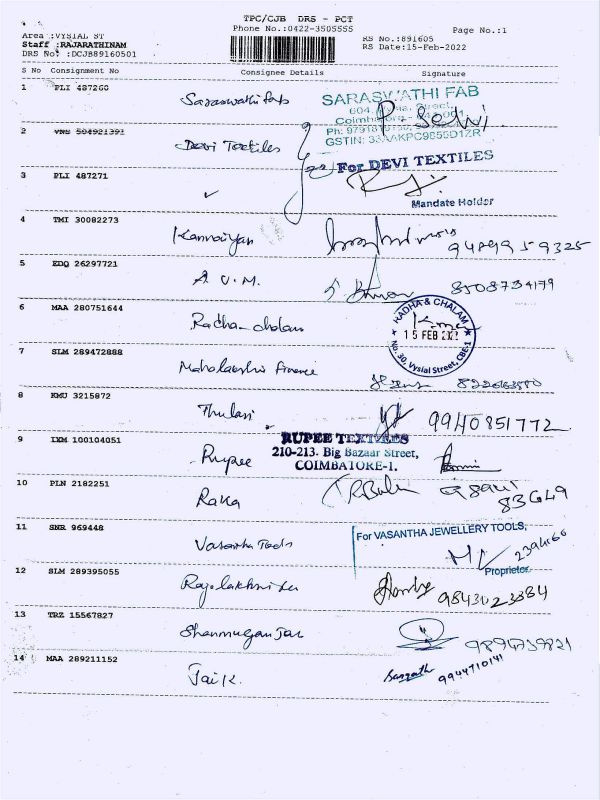 TPC/CJB DRS - PCT
Phone No.:0422-3505555
Page No.:1
Area :VYSIAL ST
Staff :RAJARATHINAM
DRS No. :DCJB89160501
RS No.:891605
RS Date:15-Feb-2022
S No Consignment No Consignee Details Signature
1 PLI 487260 Saraswathi fab
SARASWATHI FAB
Coimbatore
GSTIN:
2 VNS 504921391 Devi Textiles
For DEVI TEXTILES
3 PLI 487271 ✓
Mandate Holder
4 TMI 30082273 Kannaiyan 9489959325
5 EDQ 26297721 A.V.M. 8508734179
6 MAA 280751644 Radha-chalam
RADHA & CHALAM
15 FEB 2022
No. 30, Vysial Street, CBE-1
7 SLM 289472888 Mahalakshmi Finance
8 KMU 3215872 Thulasi 9940851772
9 IXM 100104051 Rupee
RUPEE TEXTILES
210-213. Big Bazaar Street,
COIMBATORE-1.
10 PLN 2182251 Raka
83649
11 SNR 969448 Vasantha Tools
For VASANTHA JEWELLERY TOOLS,
2394166
Proprietor
12 SLM 289395055 9843023384
13 TRZ 15567827 9894739821
14 MAA 289211152 Jai K. 9944710141